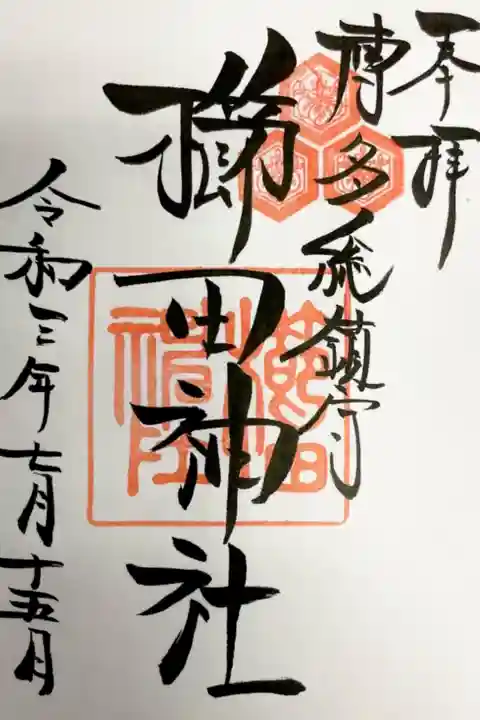 奉拝
博多総鎮守
櫛田神社
令和三年七月十五日